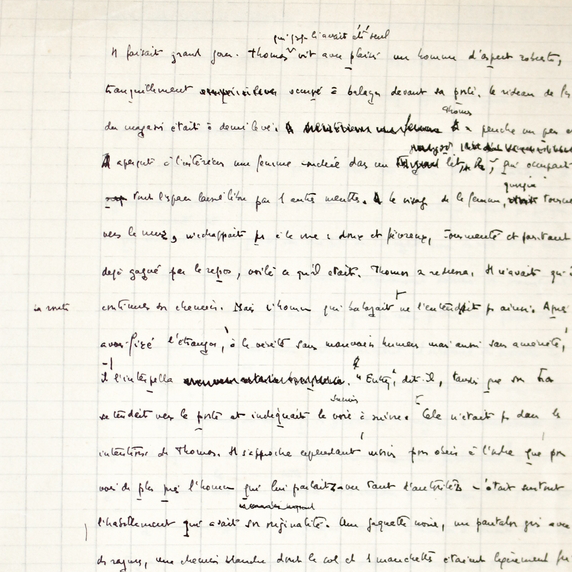 qui jusque-là avait été seul
Il faisait grand jour. Thomas vit avec plaisir un homme d'aspect robuste,
tranquillement occupé à balayer devant sa porte. le rideau de
du magasin était à demi levé. Thomas se pencha un peu
aperçut à l'intérieur une femme couchée dans un lit, qui occupait
tout l'espace laissé libre par l'autre meuble. le visage de la femme, quoique tourné
vers le mur, n'échappait pas à la vue : doux et fiévreux, tourmenté et pourtant
déjà gagné par le repos, voilà ce qu'il était. Thomas se redressa. Il n'avait qu'à
sa route
continuer son chemin. Mais l'homme qui balayait ne l'entendait pas ainsi. Après
avoir fixé l'étranger, à la vérité sans mauvaise humeur mais aussi sans aménité,
il l'interpella. "Entrez", dit-il, tandis que son bras
se tendait vers la porte et indiquait la voie à suivre. Cela n'était pas dans les
intentions de Thomas. Il s'approcha cependant, moins pour obéir à l'ordre que pour
voir de plus près l'homme qui lui parlait avec tant d'autorité. C'était surtout
l'habillement qui avait son originalité. Une jaquette noire, un pantalon gris avec
des rayures, une chemise blanche dont le col et les manchettes étaient légèrement